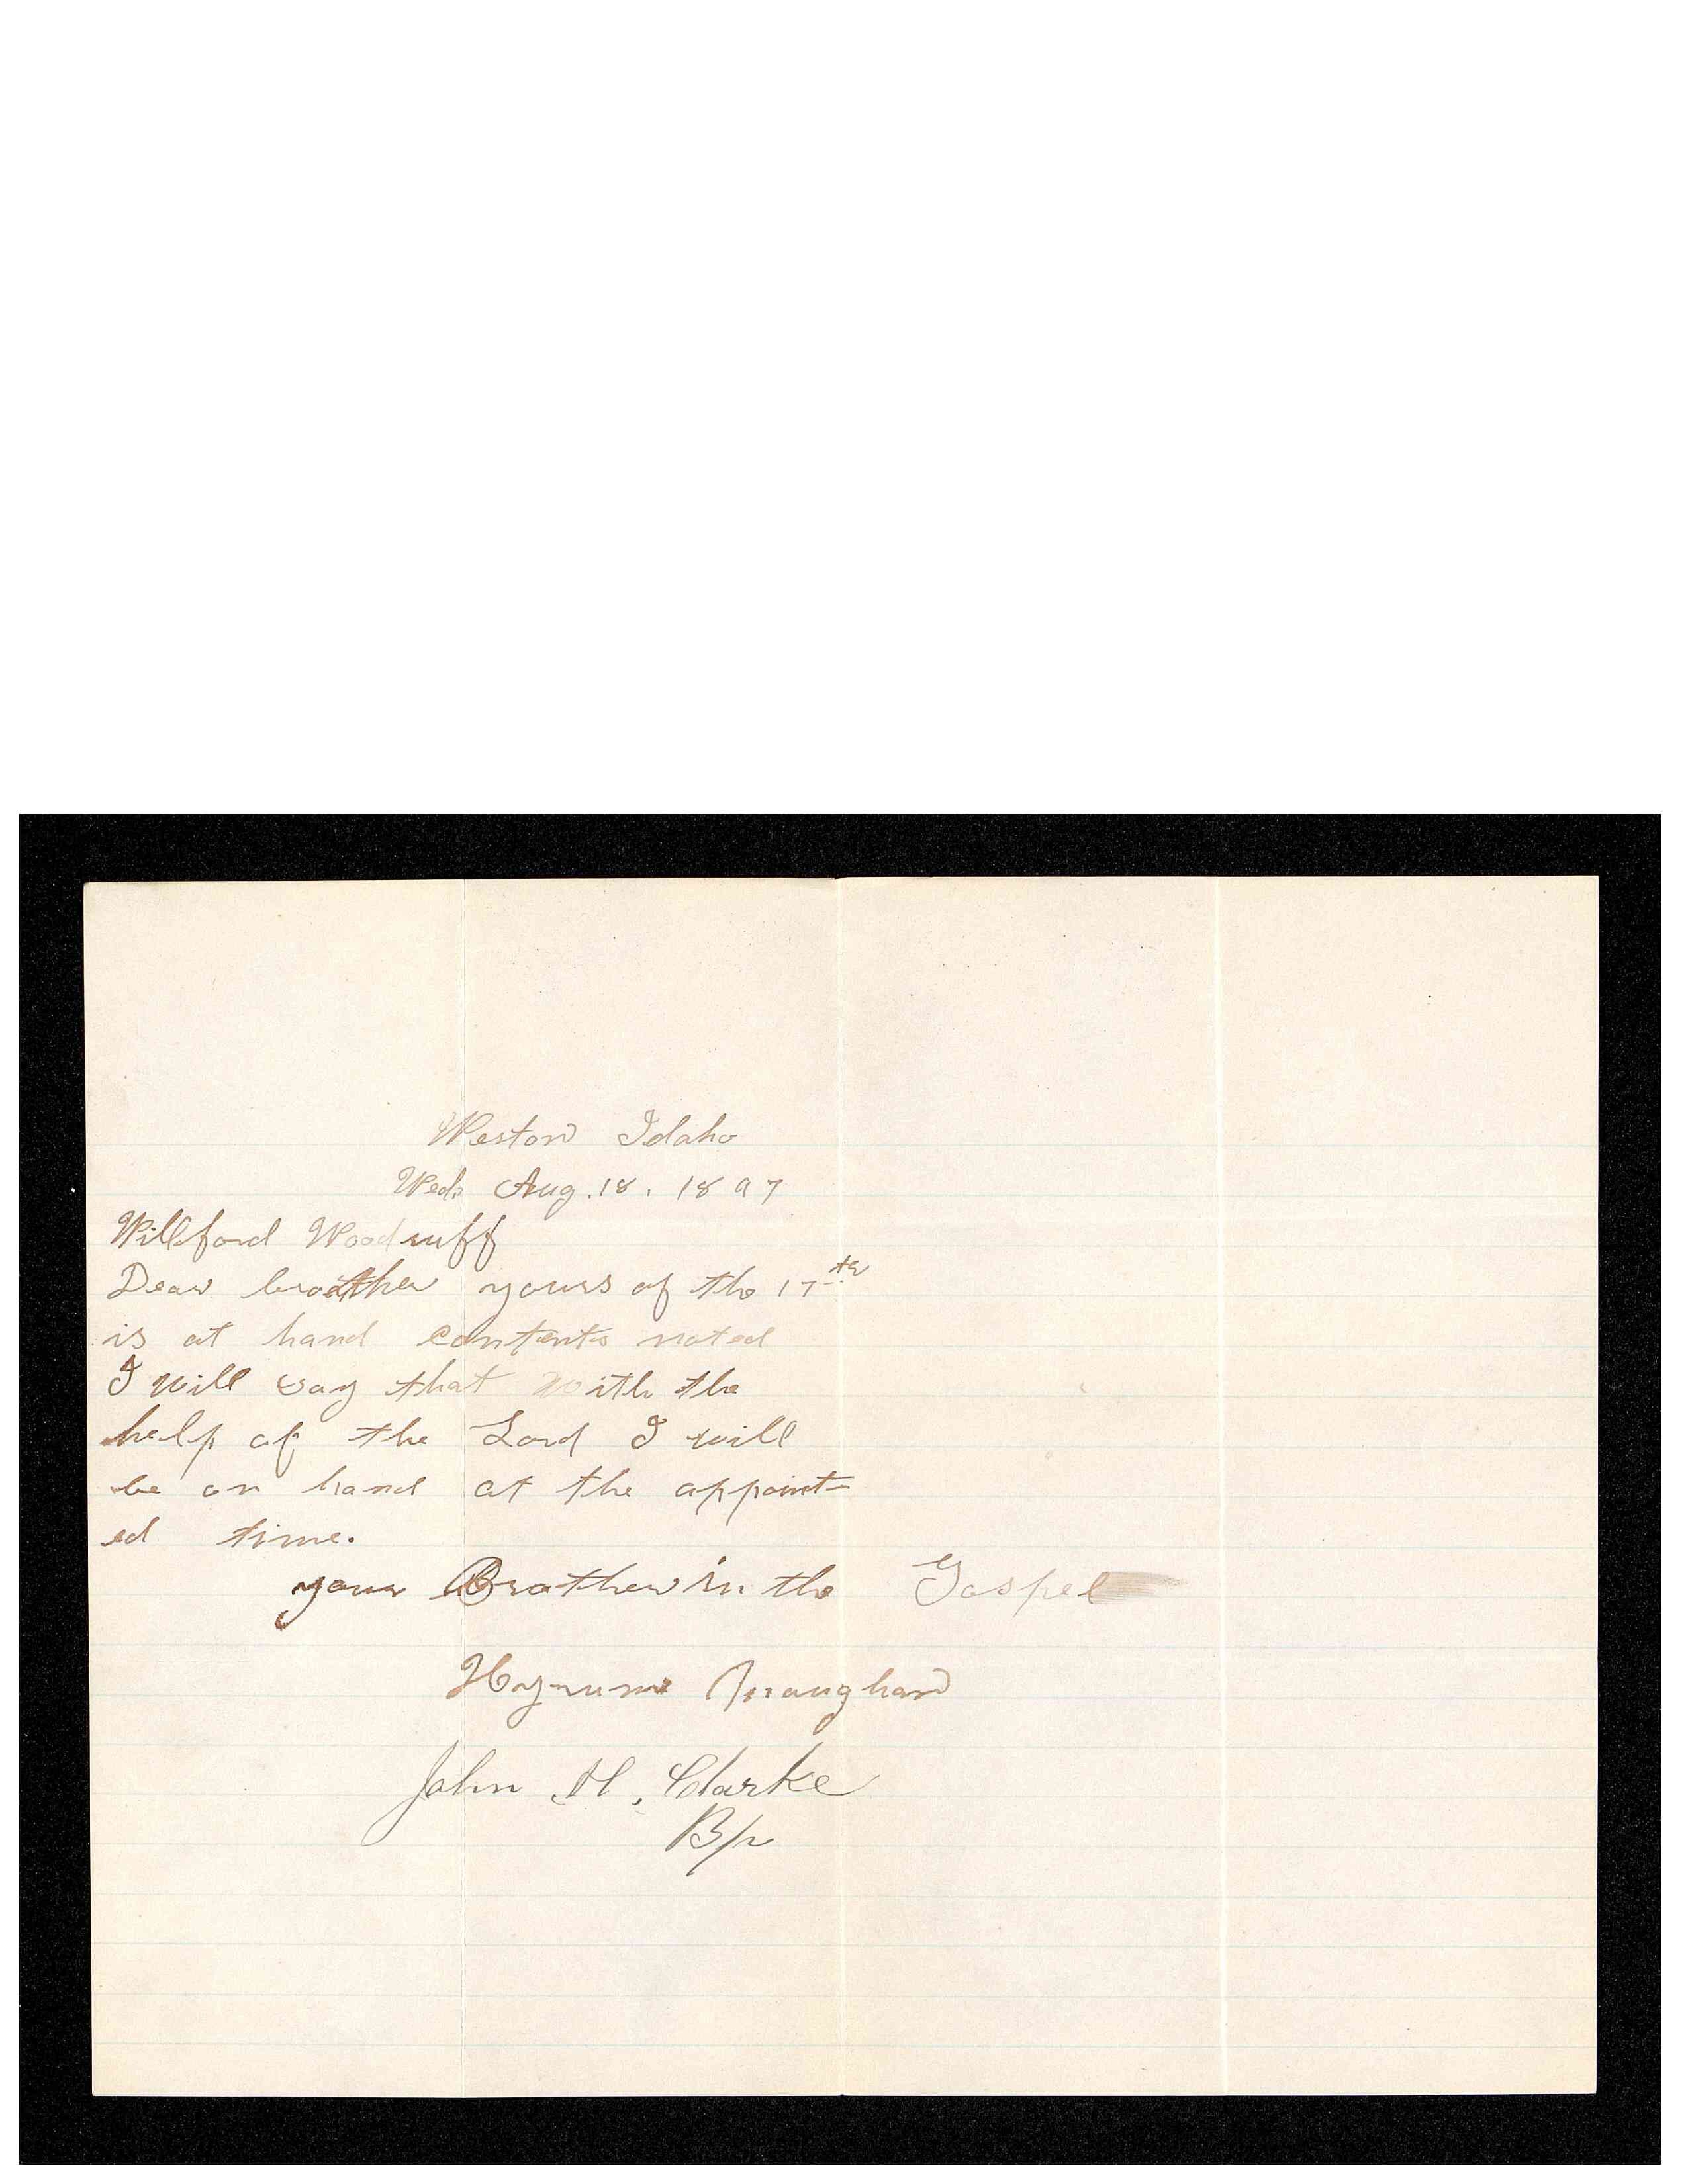 Weston Idaho
Wed. Aug. 18. 1897
Willford Woodruff
Dear brother yours of the 17th
is at hand contents noted
I will say that with the
help of the Lord I will
be on hand at the appoint-
ed time.
your Brother in the Gospel
Hyrum Maughan
John H. Clarke
Bp